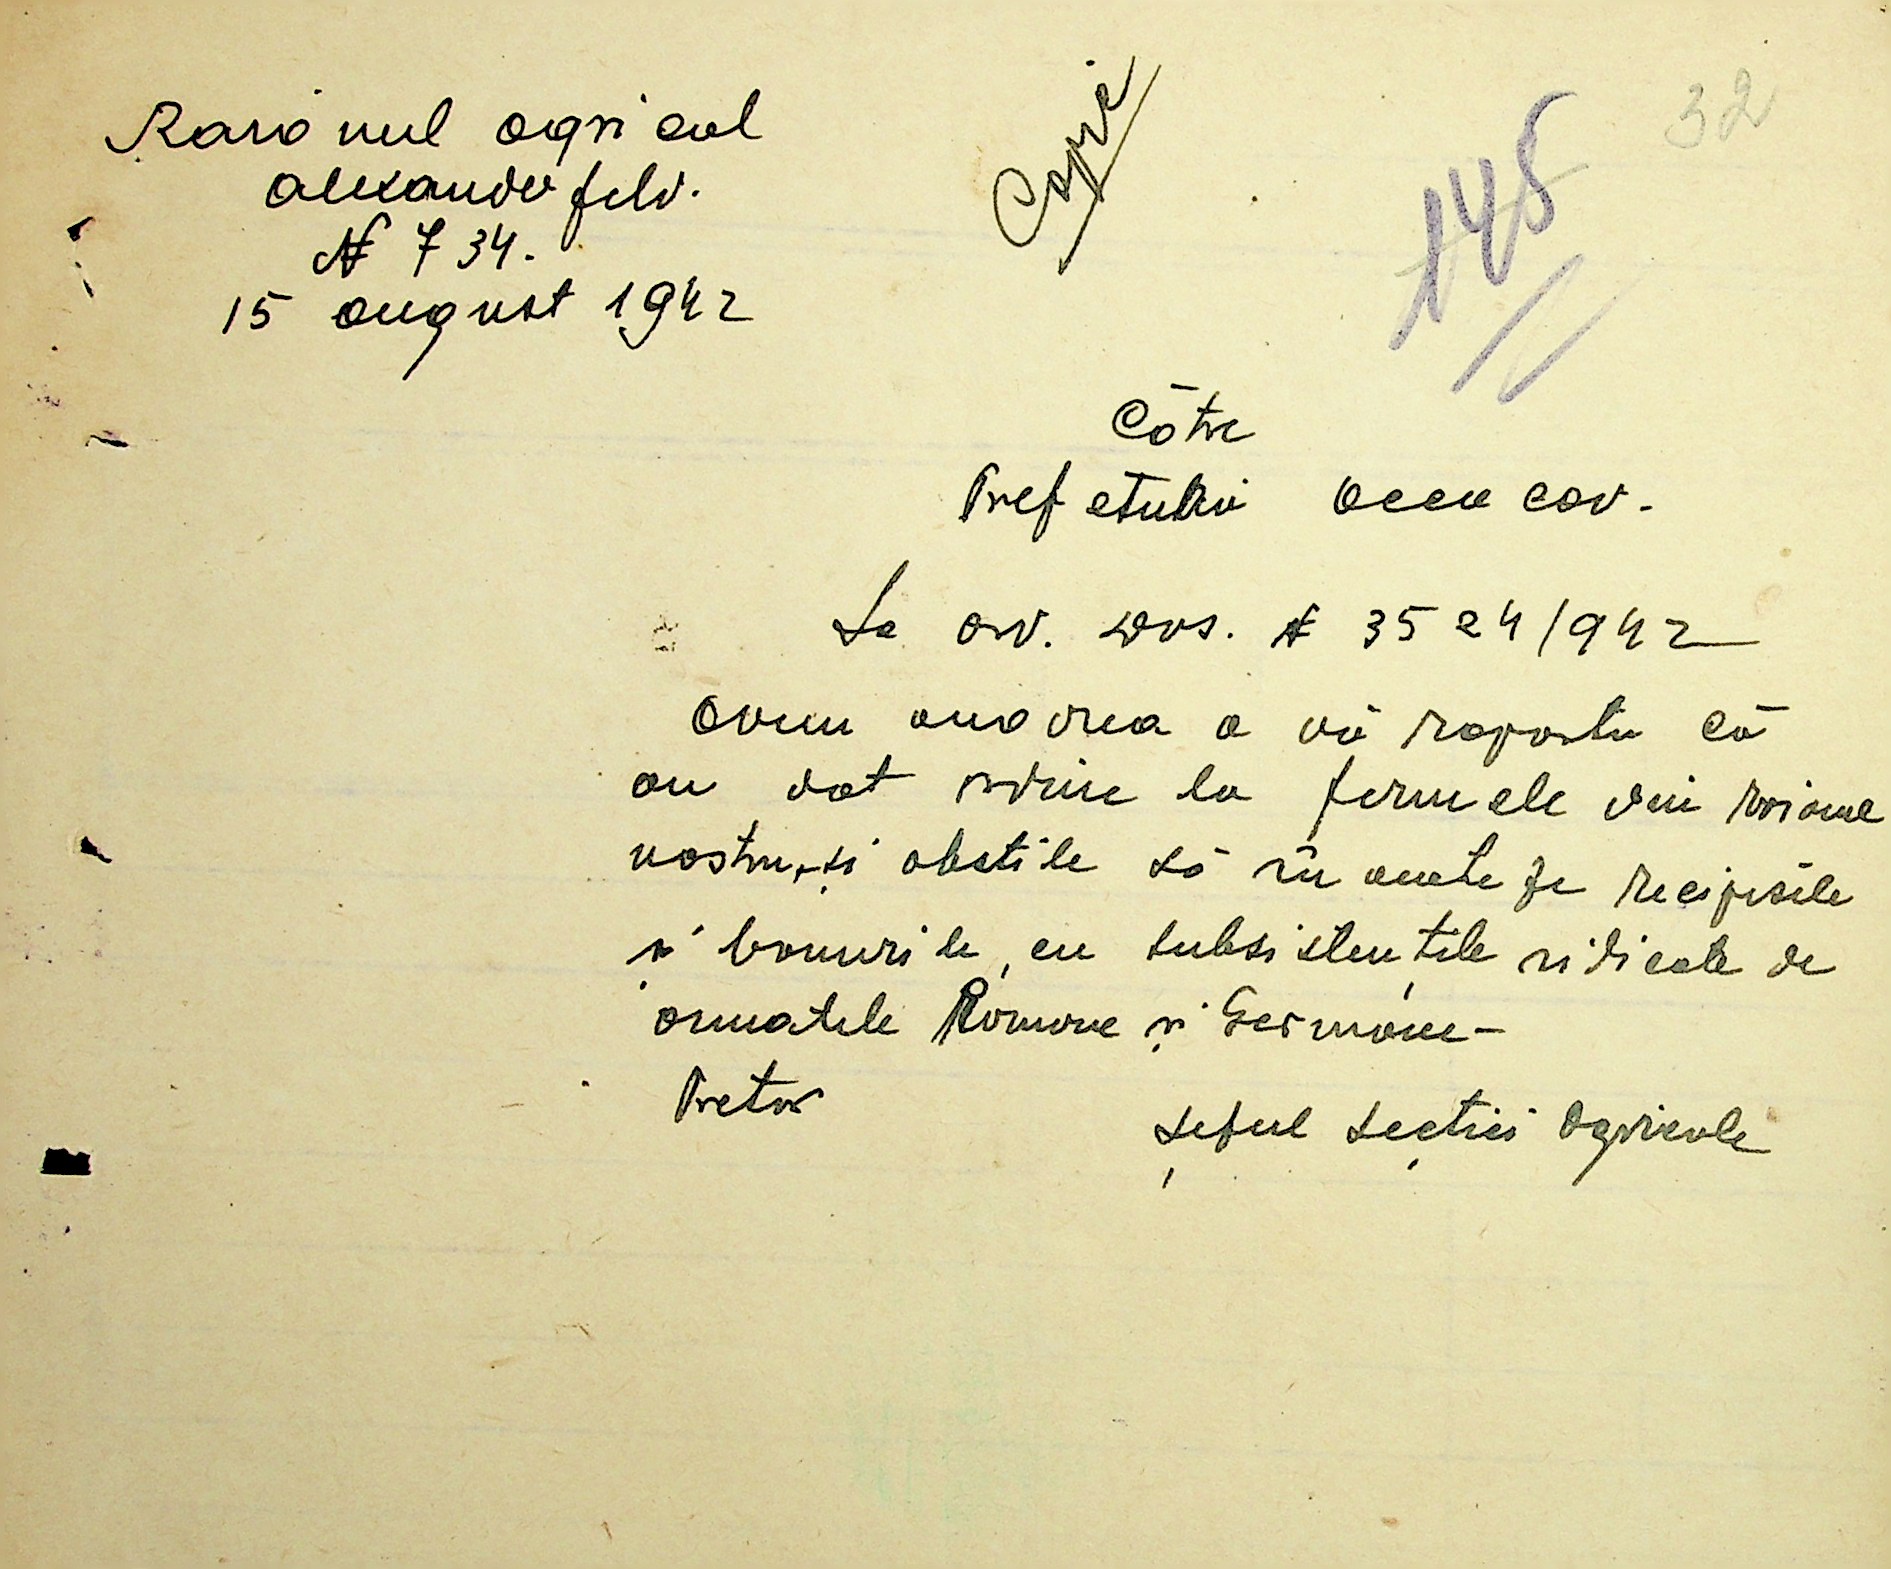 Raionul agricol
Alexanderfeld.
N 734.
15 august 1942
Copie
145
32
Cātre
Prefeturii Oceacov.
La ord. dvs. N 3524/942
Avem onoarea a vā raporta cā
am dat ordine la fermele din raionul
nostru, și obstile sā înainteze recipisele
și bonurile, cu subsistențele ridicate de
armatele Romane și Germane -
Pretor
Șeful Secției Agricole